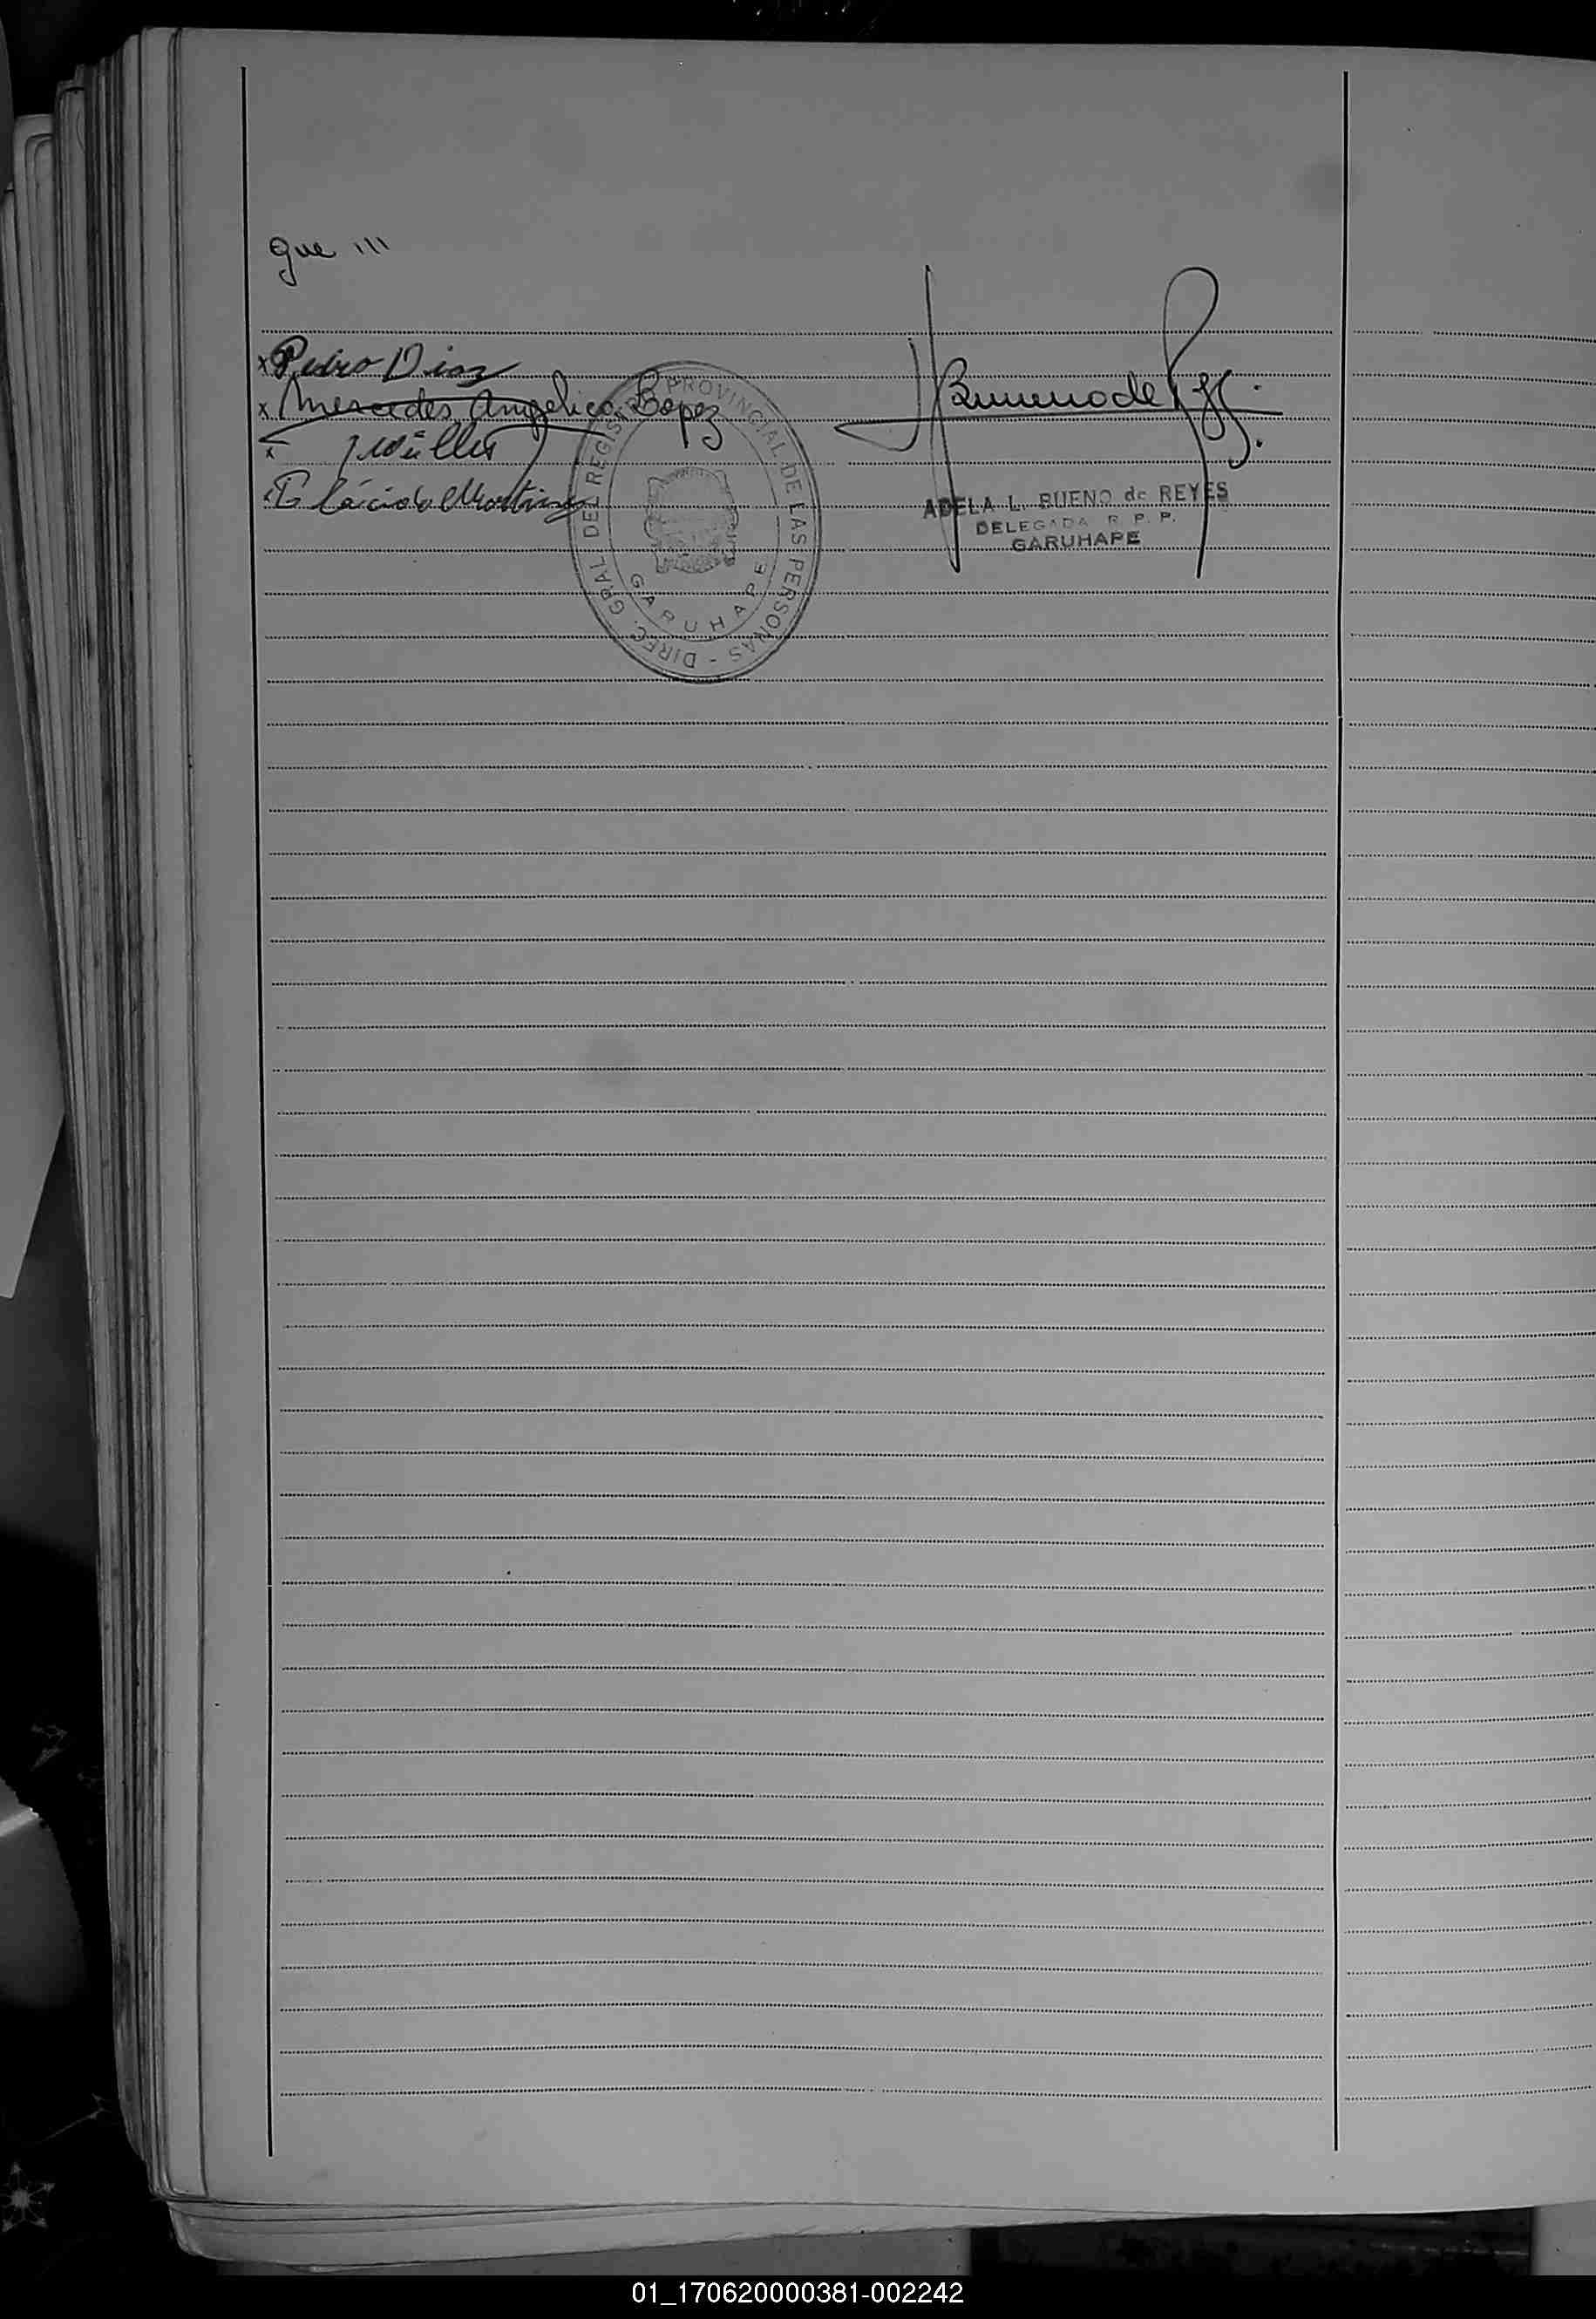 que ///
x Pedro Diaz
x Mercedes Angelica Lopez
x Müller
x Plácido Martinez
Bueno de
ADELA L. BUENO de REYES
DELEGADA R. P. P.
GARUHAPE
DIREC. GRAL DEL REGISTRO PROVINCIAL DE LAS PERSONAS -
GARUHAPE
01_170620000381-002242